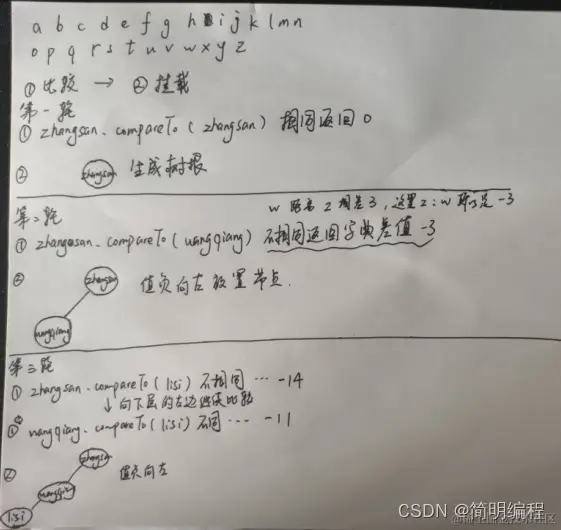 a b c d e f g h i j k l m n
o p q r s t u v w x y z
① 比较 → ② 挂载
第一轮
① zhangsan.compareTo(zhangsan) 相同返回 0
② zhangsan 生成树根
w 距离 z 相差 3，这里 z:w 就是 -3
第二轮
① zhangsan.compareTo(wangqiang) 不相同返回字典差值 -3
② zhangsan 值负向左放置节点.
wangqiang
第三轮
① zhangsan.compareTo(lisi) 不相同 … -14
↓ 向下层的左边继续比较
① wangqiang.compareTo(lisi) 不同 … -11
② zhangsan 值负向左
wangqiang
lisi
CSDN @简明编程